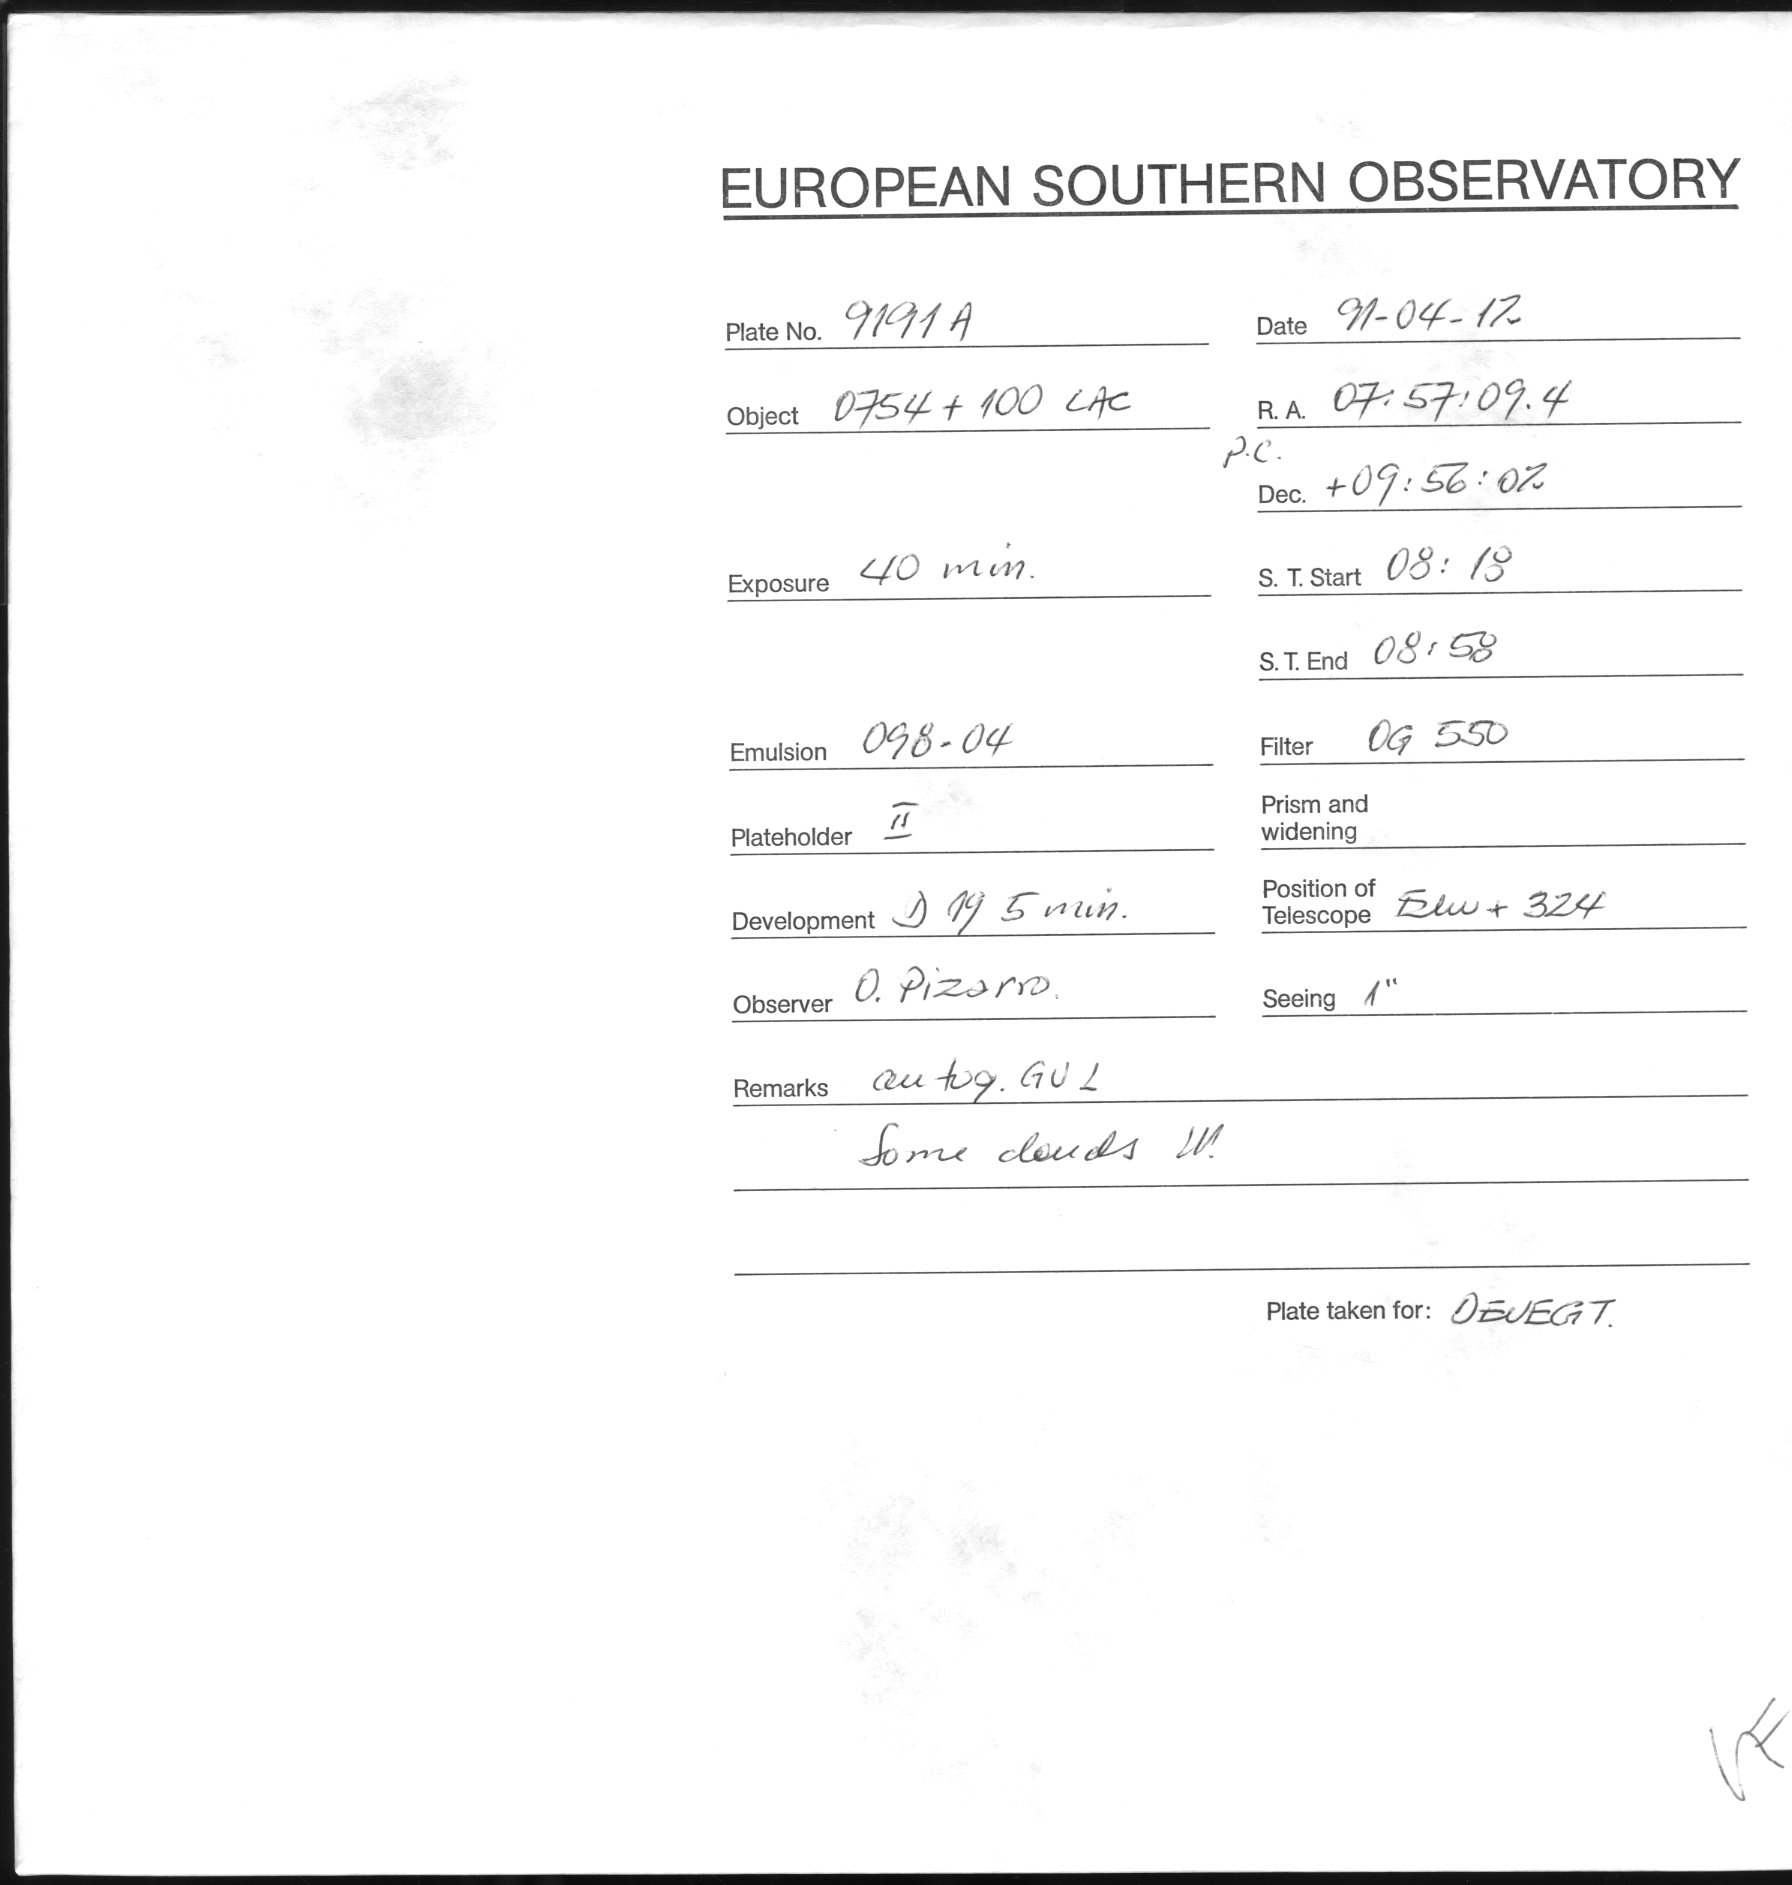 EUROPEAN SOUTHERN OBSERVATORY
Plate No. 9191 A
Date 91-04-12
Object 0754 + 100 LAC
R. A. 07:57:09.4
P.C.
Dec. +09:56:02
Exposure 40 min.
S. T. Start 08:18
S. T. End 08:58
Emulsion 098-04
Filter OG 550
Plateholder II
Prism and
widening
Development D 19 5 min.
Position of
Telescope + 324
Observer O. Pizarro.
Seeing 1"
Remarks autog. GUL
Some clouds W.
Plate taken for: DEVEGT.